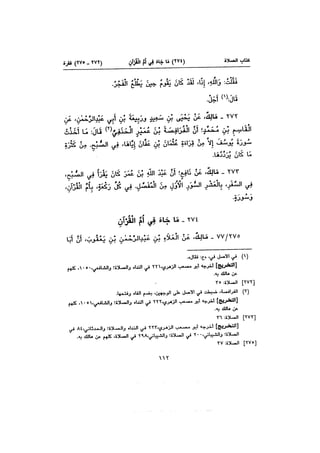 كتاب الصلاة (٢٧٤) مَا جَاءَ فِي أُمِّ الْقُرْآنِ (٢٧٢ - ٢٧٥) فقرة
فَقُلْتُ: وَاللَّهِ، إِذًا، لَقَدْ كَانَ يَقُومُ حِينَ يَطْلُعُ الْفَجْرُ.
قَالَ(١) أَجَلْ.
٢٧٢ - مَالِكٌ، عَنْ يَحْيَى بْنِ سَعِيدٍ وَرَبِيعَةَ بْنِ أَبِي عَبْدِالرَّحْمٰنِ، عَنِ
الْقَاسِمِ بْنِ مُحَمَّدٍ؛ أَنَّ الْفُرَافِصَةَ بْنَ عُمَيْرٍ الْحَنَفِيَّ(٢) قَالَ: مَا أَخَذْتُ
سُورَةَ يُوسُفَ إِلَّا مِنْ قِرَاءَةِ عُثْمَانَ بْنِ عَفَّانَ إِيَّاهَا، فِي الصُّبْحِ. مِنْ كَثْرَةِ
مَا كَانَ يُرَدِّدُهَا.
٢٧٣ - مَالِكٌ، عَنْ نَافِعٍ؛ أَنَّ عَبْدَ اللَّهِ بْنَ عُمَرَ كَانَ يَقْرَأُ فِي الصُّبْحِ،
فِي السَّفَرِ، بِالْعَشْرِ السُّوَرِ الْأُوَلِ مِنَ الْمُفَصَّلِ. فِي كُلِّ رَكْعَةٍ، بِأُمِّ الْقُرْآنِ،
وَسُورَةٍ.
٢٧٤ - مَا جَاءَ فِي أُمِّ الْقُرْآنِ
٧٧/٢٧٥ - مَالِكٌ، عَنِ الْعَلَاءِ بْنِ عَبْدِالرَّحْمٰنِ بْنِ يَعْقُوبَ، أَنَّ أَبَا
(١) في الأصل في «ح»: فقال».
[التخريج] أخرجه أبو مصعب الزهري، ٢٢١ في النداء والصلاة؛ والشافعي، ١٠٥٠، كلهم
عن مالك به.
[٢٧٢] الصلاة: ٣٥
(٢) الفرافصة، ضبطت في الأصل على الوجهين، بضم الفاء وفتحها.
[التخريج] أخرجه أبو مصعب الزهري، ٢٢٢ في النداء والصلاة؛ والشافعي، ١٠٥١، كلهم
عن مالك به.
[٢٧٣] الصلاة: ٣٦
[التخريج] أخرجه أبو مصعب الزهري، ٢٢٣ في النداء والصلاة؛ والحدثاني، ٨٤ في
الصلاة؛ والشيباني، ٢٠٠ في الصلاة؛ والشيباني، ٢٩٨ في الصلاة، كلهم عن مالك به.
[٢٧٥] الصلاة: ٣٧
١١٢